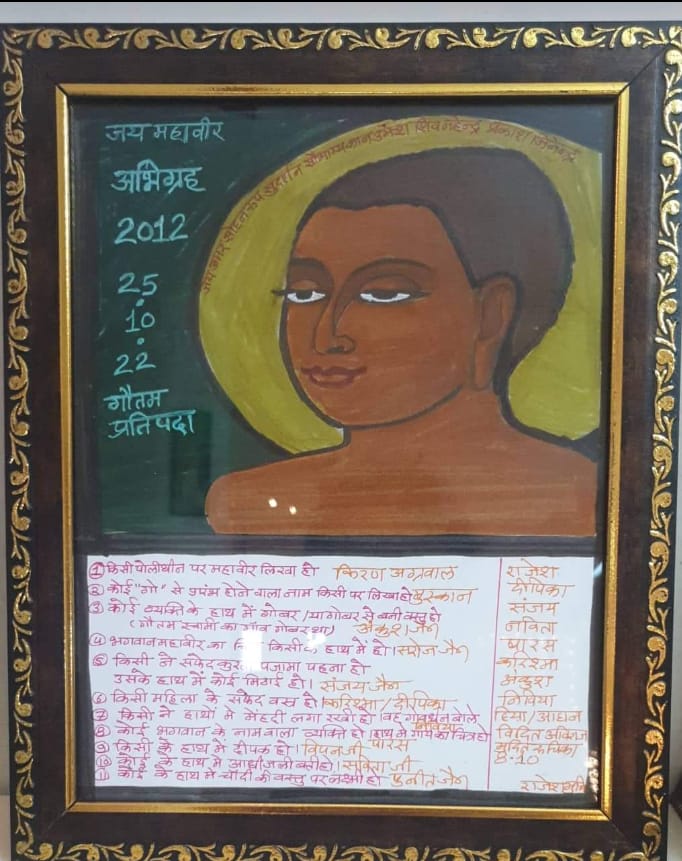 जय महावीर
अभिग्रह
2012
25
10
22
गौतम
प्रतिपदा
जय अमर सोहन रूप सुदर्शन सौभाग्य ज्ञान उमेश शिव महेन्द्र प्रकाश जिनेन्द्र
① किसी पोलीथीन पर महावीर लिखा हो किरण अग्रवाल
② कोई "गो" से प्रारंभ होने वाला नाम किसी पर लिखा हो मुस्कान
③ कोई व्यक्ति के हाथ में गोबर / या गोबर से बनी वस्तु हो
(गौतम स्वामी का गाँव गोबर था) अंकुश जैन
④ भगवान महावीर का किसी के हाथ में हो। सरोज जैन
⑤ किसी ने सफेद कुरता पजामा पहना हो
उसके हाथ में कोई मिठाई हो। संजय जैन
⑥ किसी महिला के सफेद वस्त्र हो करिश्मा / दीपिका
⑦ किसी ने हाथों में मेहंदी लगा रखी हो। वह गोवर्धन बोले
⑧ कोई भगवान के नामवाला व्यक्ति हो हाथ में गाय का चित्र हो
⑨ किसी के हाथ में दीपक हो। विपनजी पारस
⑩ कोई के हाथ में हो। सविता जी
11 कोई के हाथ में चाँदी की वस्तु पर लक्ष्मी हो पुनीत जैन
राजेश
दीपिका
संजय
नविता
पारस
करिश्मा
अंकुश
निषिया
हिया / आद्यन
विदित
रूचिका
8.10
राजेश मुनि